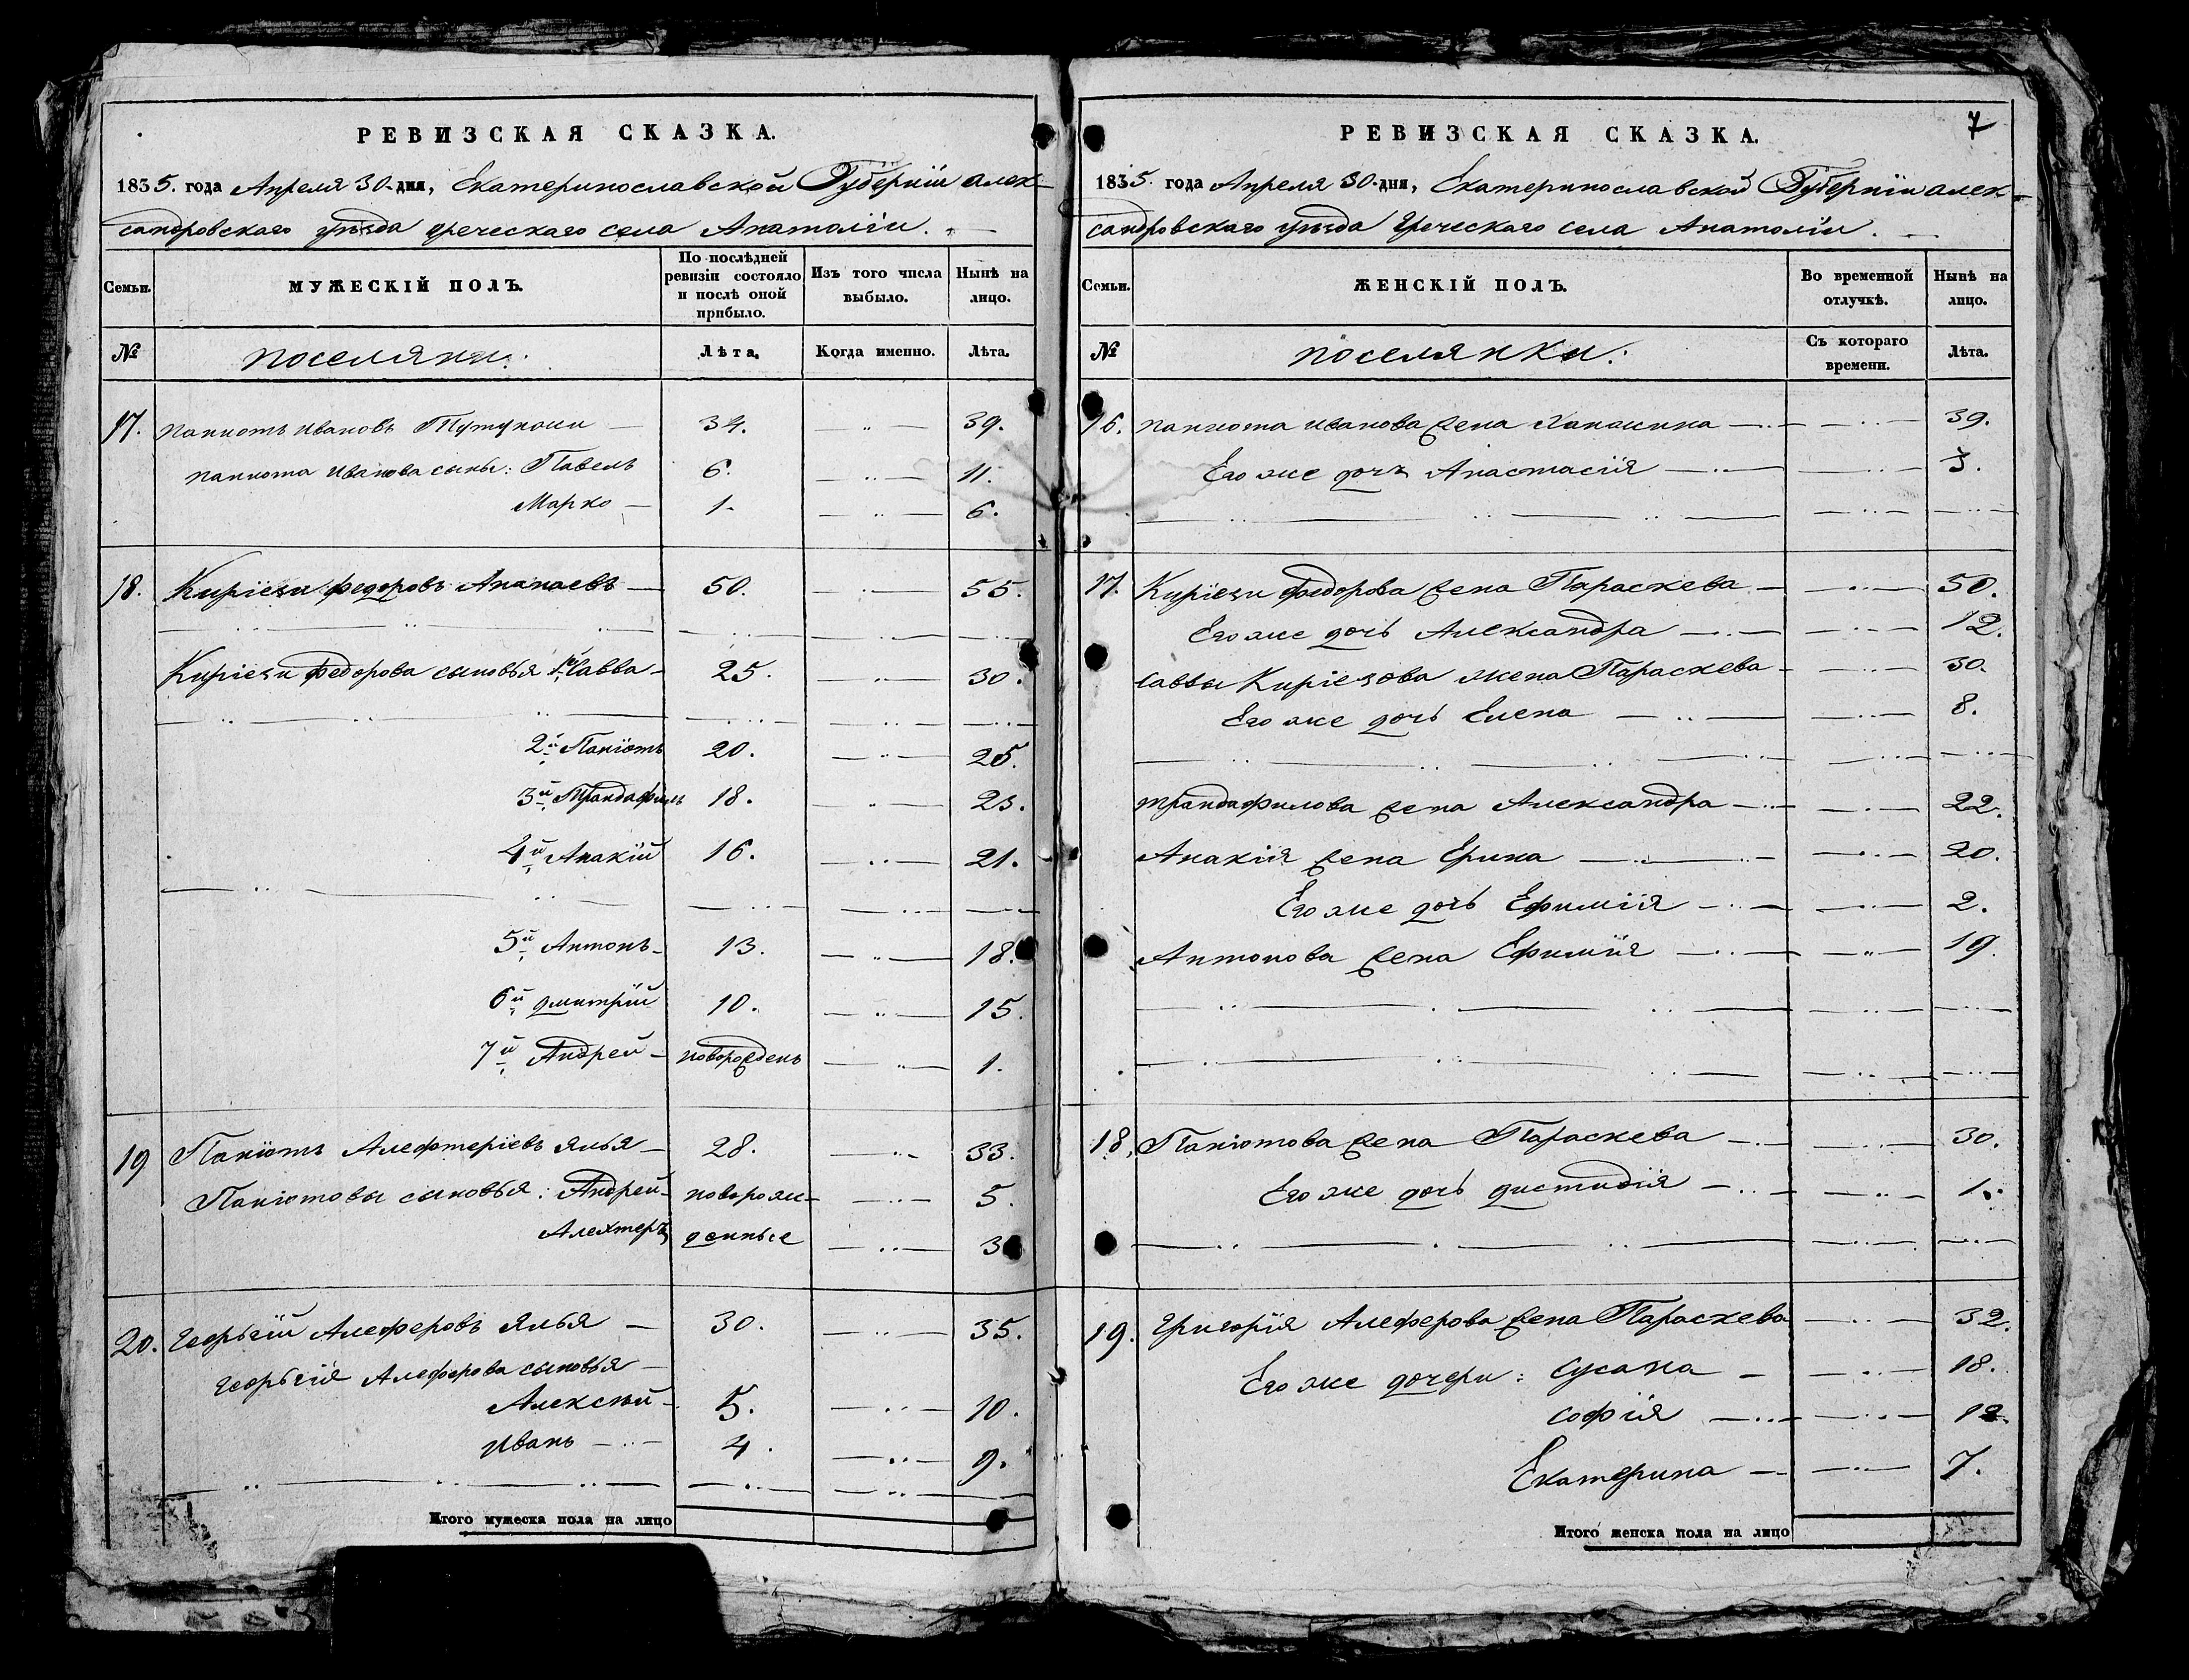 РЕВИЗСКАЯ СКАЗКА.
1835. года Апреля 30. дня, Екатеринославской Губернїи алек-
сандровскаго уѣзда греческаго села Анатолїи.
Семьи.
МУЖЕСКІЙ ПОЛЪ.
По послѣдней ревизіи состояло и послѣ оной прибыло.
Изъ того числа выбыло.
Нынѣ на лицо.
№
поселяни:
Лѣта.
Когда именно.
Лѣта.
17. паниотъ ивановъ — 34. — 39.
паниота иванова сыны: Павелъ 6. — 11.
Марко — 1. — 6.
18. Кирїези федоровъ Ананаевъ — 50. — 55.
Кирїези федорова сыновья 1й Савва — 25. — 30.
2й Панїотъ 20. — 25.
3й Трандафилъ 18. — 23.
4й Анакїй 16. — 21.
5й Антонъ — 13. — 18.
6й дмитрїй 10. — 15.
7й Андрей — новорожденъ — 1.
19 Панїотъ Алефтерїевъ Ялья — 28. — 33.
Панїотовы сыновья: Андрей — новорож- — 5.
Алехтеръ денные — 3
20. Георьгїй Алеферовъ Ялья — 30. — 35.
георьгїя Алеферова сыновья —
Алексѣй — 5. — 10.
иванъ — 4. — 9.
Итого мужеска пола на лицо
7
РЕВИЗСКАЯ СКАЗКА.
1835. года Апреля 30. дня, Екатеринославской Губернїи алек-
сандровскаго уѣзда Греческаго села Анатолїи.
Семьи.
ЖЕНСКІЙ ПОЛЪ.
Во временной отлучкѣ.
Нынѣ на лицо.
№
поселянки:
Съ котораго времени.
Лѣта.
16. паниота иванова жена — 39.
Его же дочь Анастасїя — 3.
17. Кирїези федорова жена Параскева — 50.
Его же дочь Александра — 12.
саввы Кирїезова жена Параскева — 30.
Его же дочь Елена — 8.
трандафилова жена Александра — 22.
Анакїя жена Ерина — 20.
Его же дочь Ефимїя — 2.
Антонова жена Ефимїя — 19.
18. Панїотова жена Параскева — 30.
Его же дочь — 1.
19. григорїя Алеферова жена Параскева — 32.
Его же дочери: сусана — 18.
софїя — 12.
Екатерина — 7.
Итого женска пола на лицо